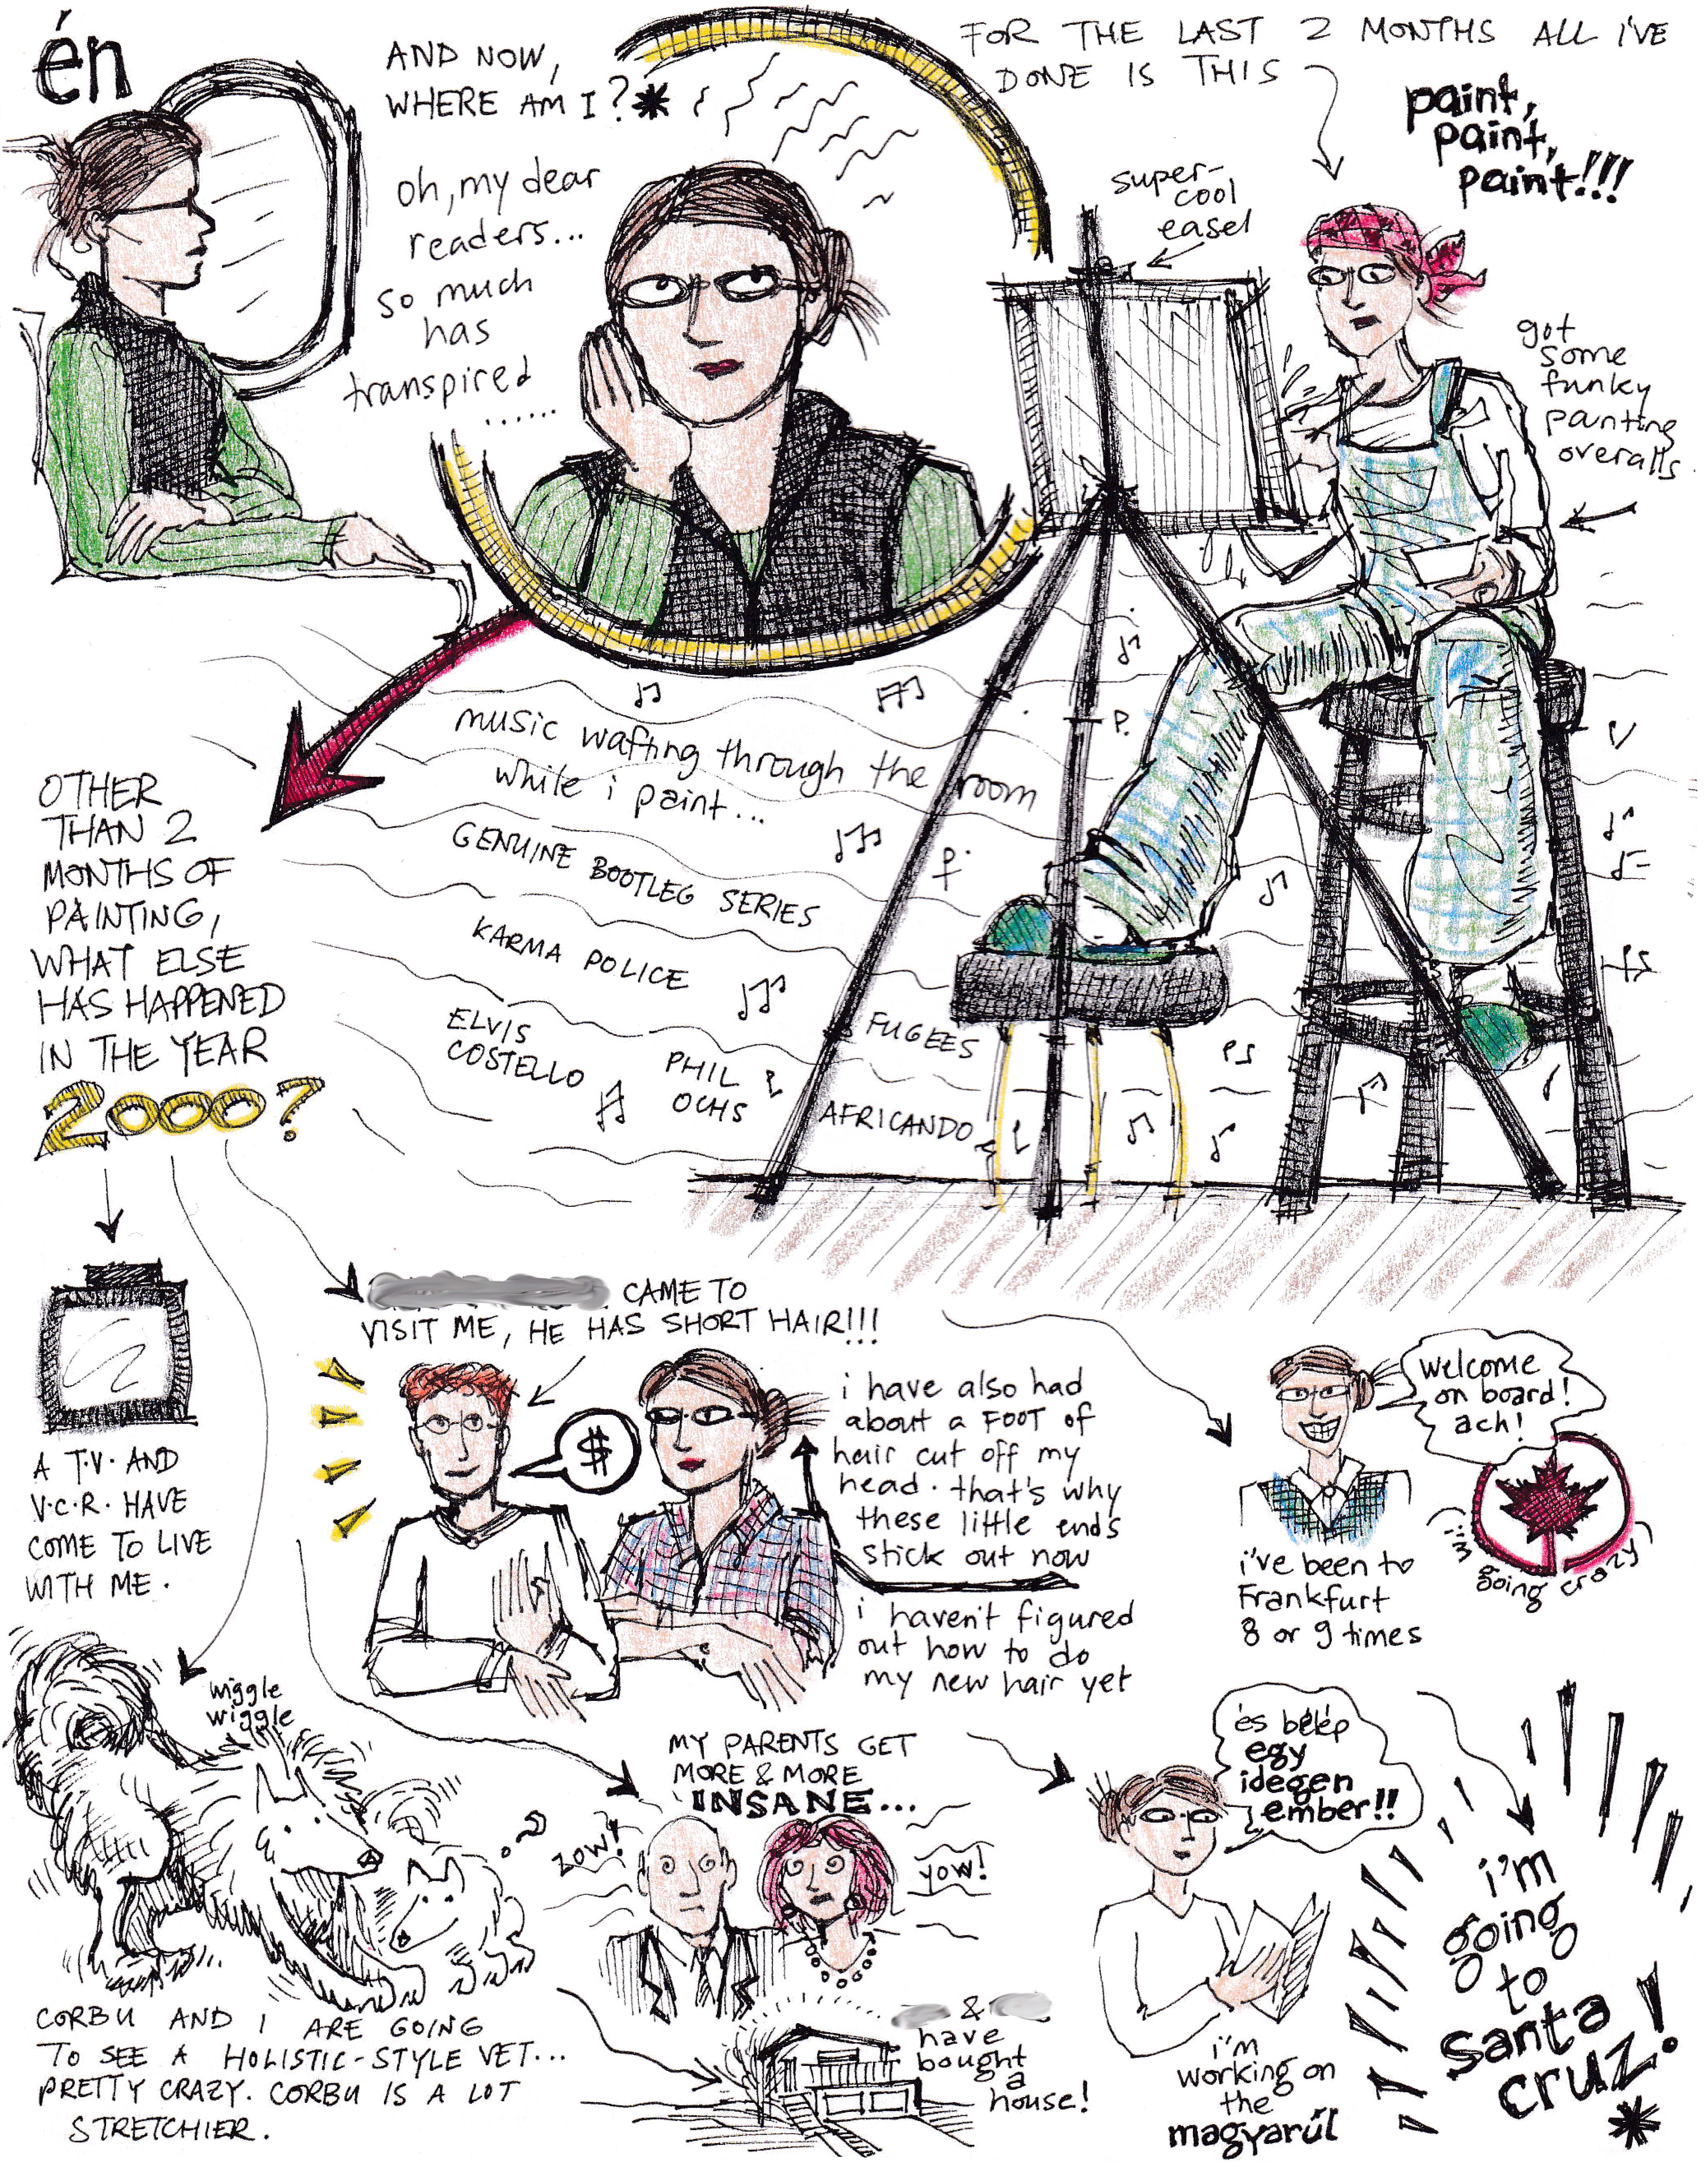 én
AND NOW,
WHERE AM I?*
oh, my dear
readers...
so much
has
transpired
......
FOR THE LAST 2 MONTHS ALL I'VE
DONE IS THIS
paint,
paint,
paint!!!
super-
cool
easel
got
some
funky
painting
overalls
music wafting through the room
while i paint...
GENUINE BOOTLEG SERIES
KARMA POLICE
ELVIS
COSTELLO
PHIL
OCHS
FUGEES
AFRICANDO
OTHER
THAN 2
MONTHS OF
PAINTING,
WHAT ELSE
HAS HAPPENED
IN THE YEAR
2000?
A T.V. AND
V.C.R. HAVE
COME TO LIVE
WITH ME.
CAME TO
VISIT ME, HE HAS SHORT HAIR!!!
$
i have also had
about a FOOT of
hair cut off my
head. that's why
these little ends
stick out now
i haven't figured
out how to do
my new hair yet
welcome
on board!
ach!
i'm going crazy
i've been to
Frankfurt
8 or 9 times
wiggle
wiggle
?
CORBU AND I ARE GOING
TO SEE A HOLISTIC-STYLE VET...
PRETTY CRAZY. CORBU IS A LOT
STRETCHIER.
MY PARENTS GET
MORE & MORE
INSANE...
ZOW!
YOW!
&
have
bought
a
house!
és belép
egy
idegen
ember!!
i'm
working on
the
magyarúl
i'm
going
to
santa
cruz!
*